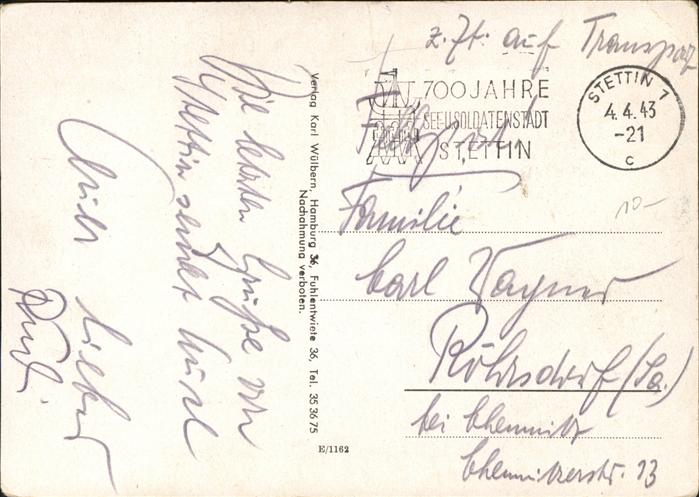 z. Zt. auf Transport
700 JAHRE
SEE U. SOLDATENSTADT
STETTIN
STETTIN 1
4.4.43
-21
c
Feldpost
10-
Familie
Carl Wagner
Röhrsdorf (Sa.)
bei Chemnitz
Chemnitzerstr. 13
Verlag Karl Wülbern, Hamburg 36, Fuhlentwiete 36, Tel. 35 36 75
Nachahmung verboten.
E/1162
Die letzten Grüße von
Stettin sendet Euch
Euer lieber